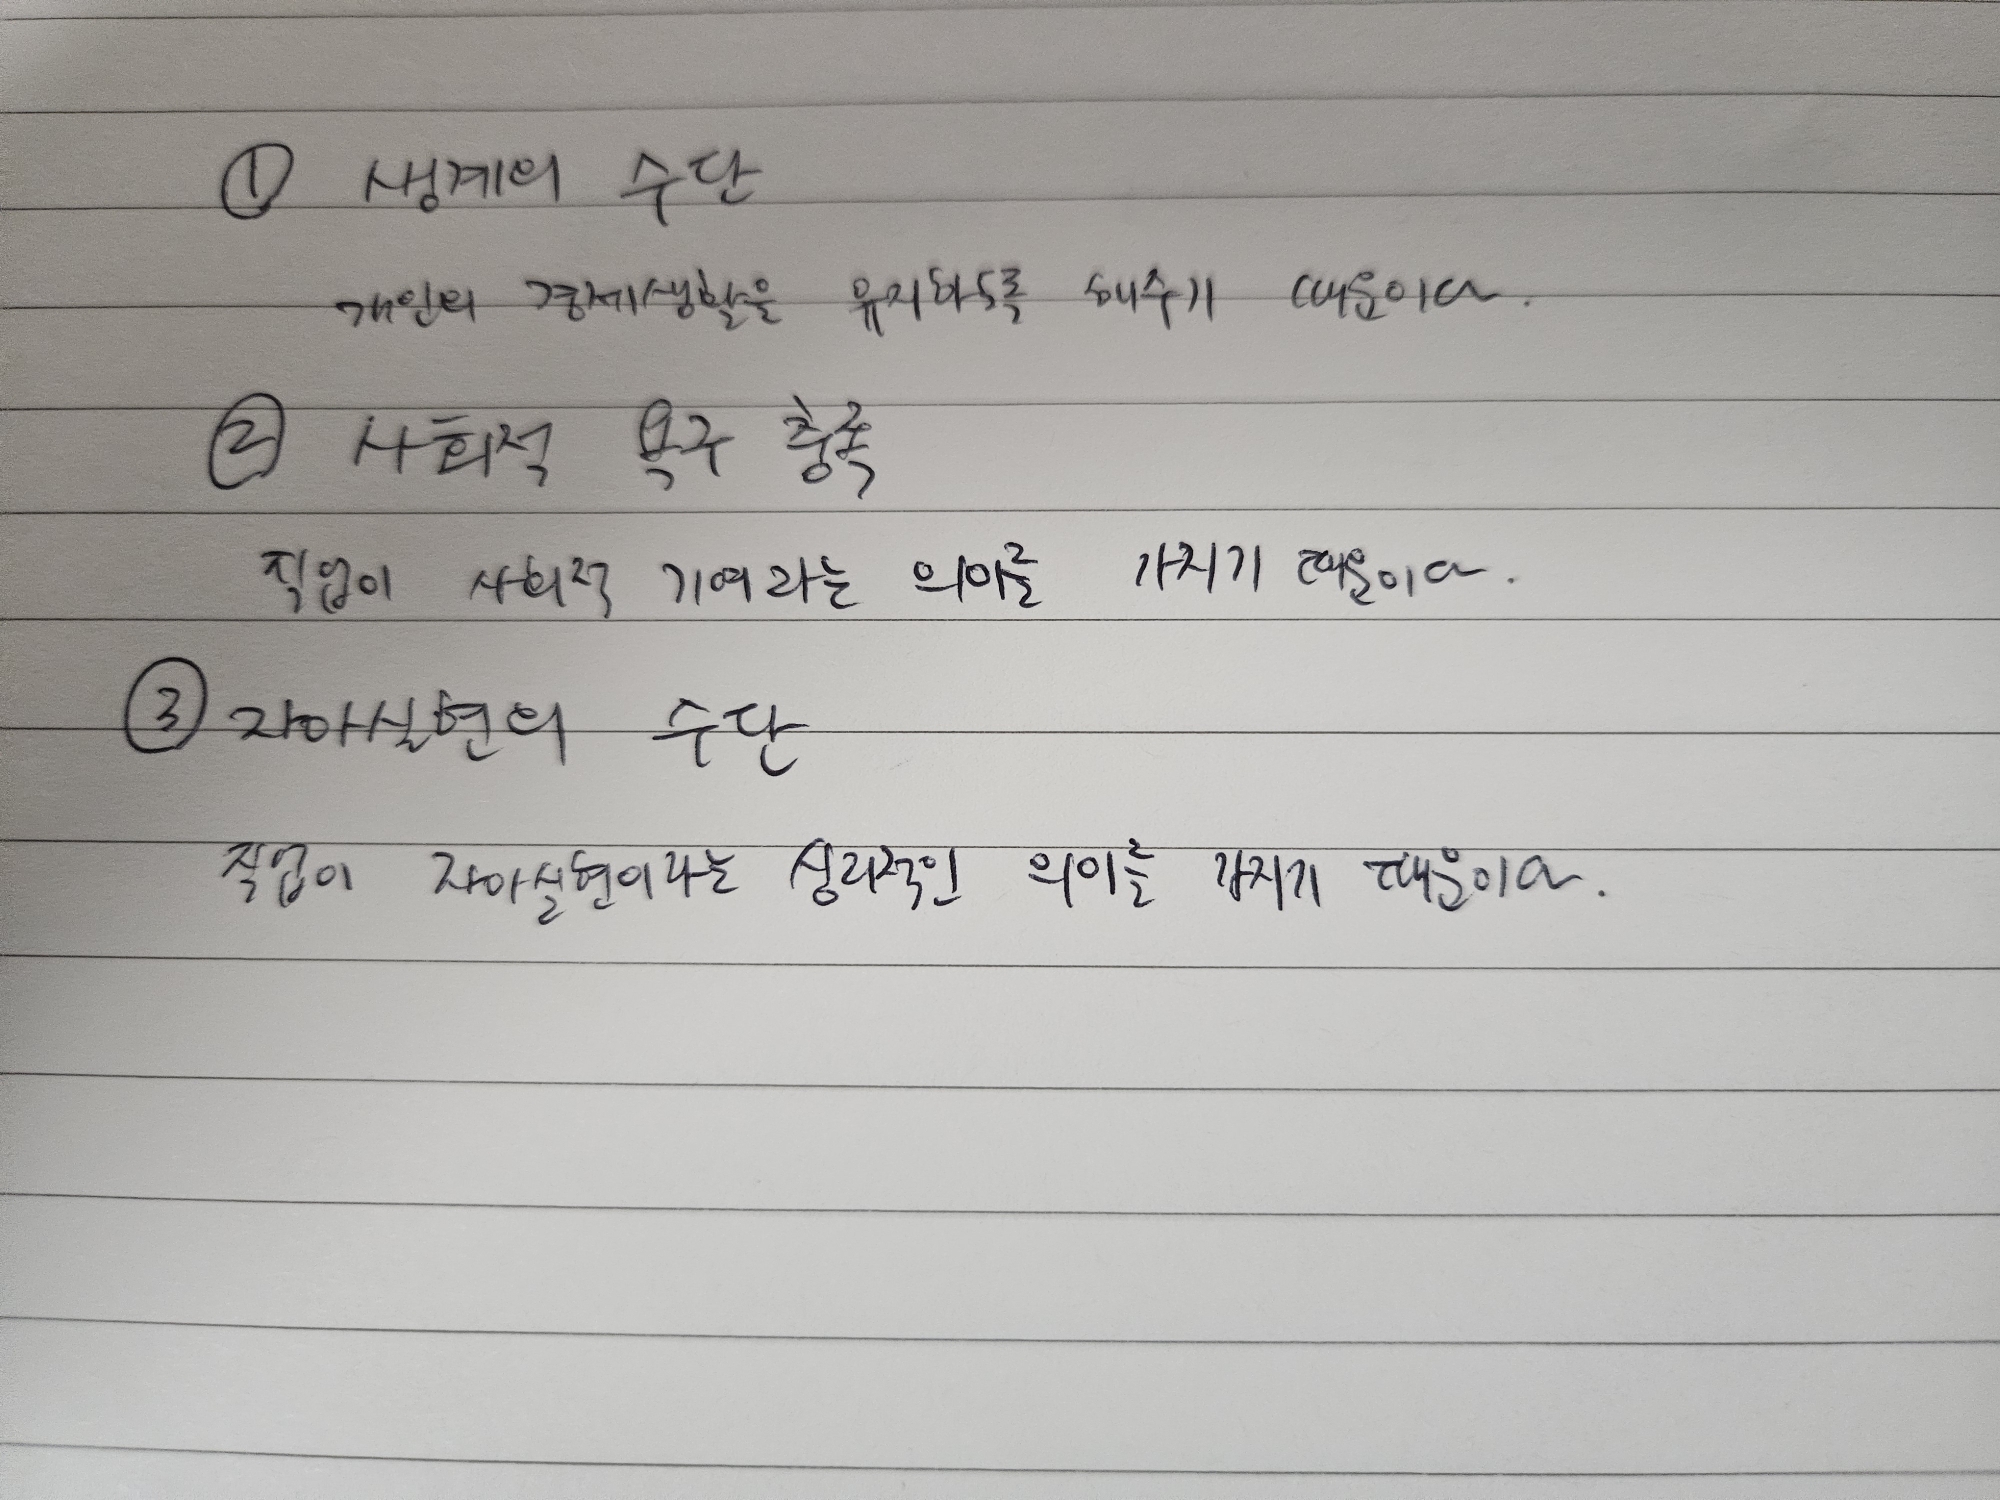 ① 생계의 수단
개인의 경제생활을 유지하도록 해주기 때문이다.
② 사회적 욕구 충족
직업이 사회적 기여라는 의의를 가지기 때문이다.
③ 자아실현의 수단
직업이 자아실현이라는 심리적인 의의를 가지기 때문이다.